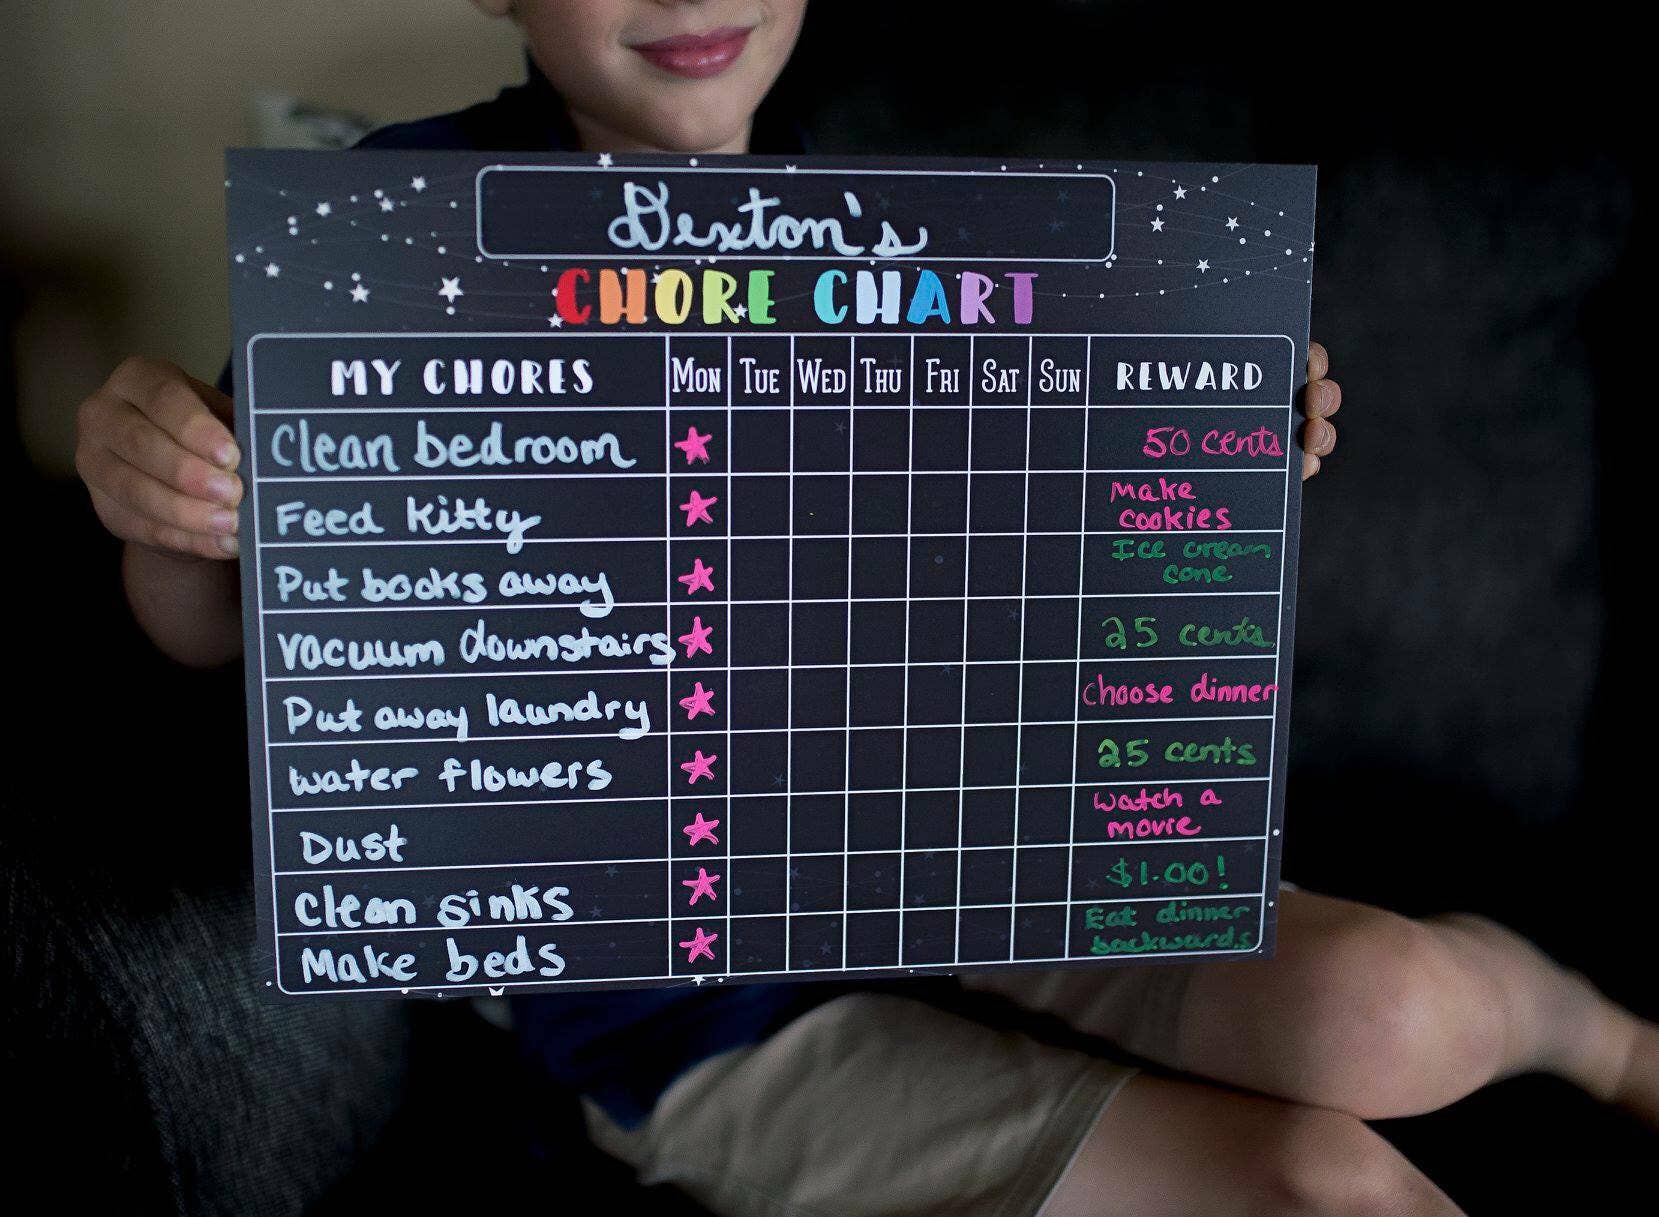 Dexton's
CHORE CHART
MY CHORES MON TUE WED THU FRI SAT SUN REWARD
Clean bedroom 50 cents
Feed kitty Make
cookies
Put books away Ice cream
cone
Vacuum downstairs 25 cents
Put away laundry choose dinner
water flowers 25 cents
Dust watch a
movie
Clean sinks $1.00!
Make beds Eat dinner
backwards